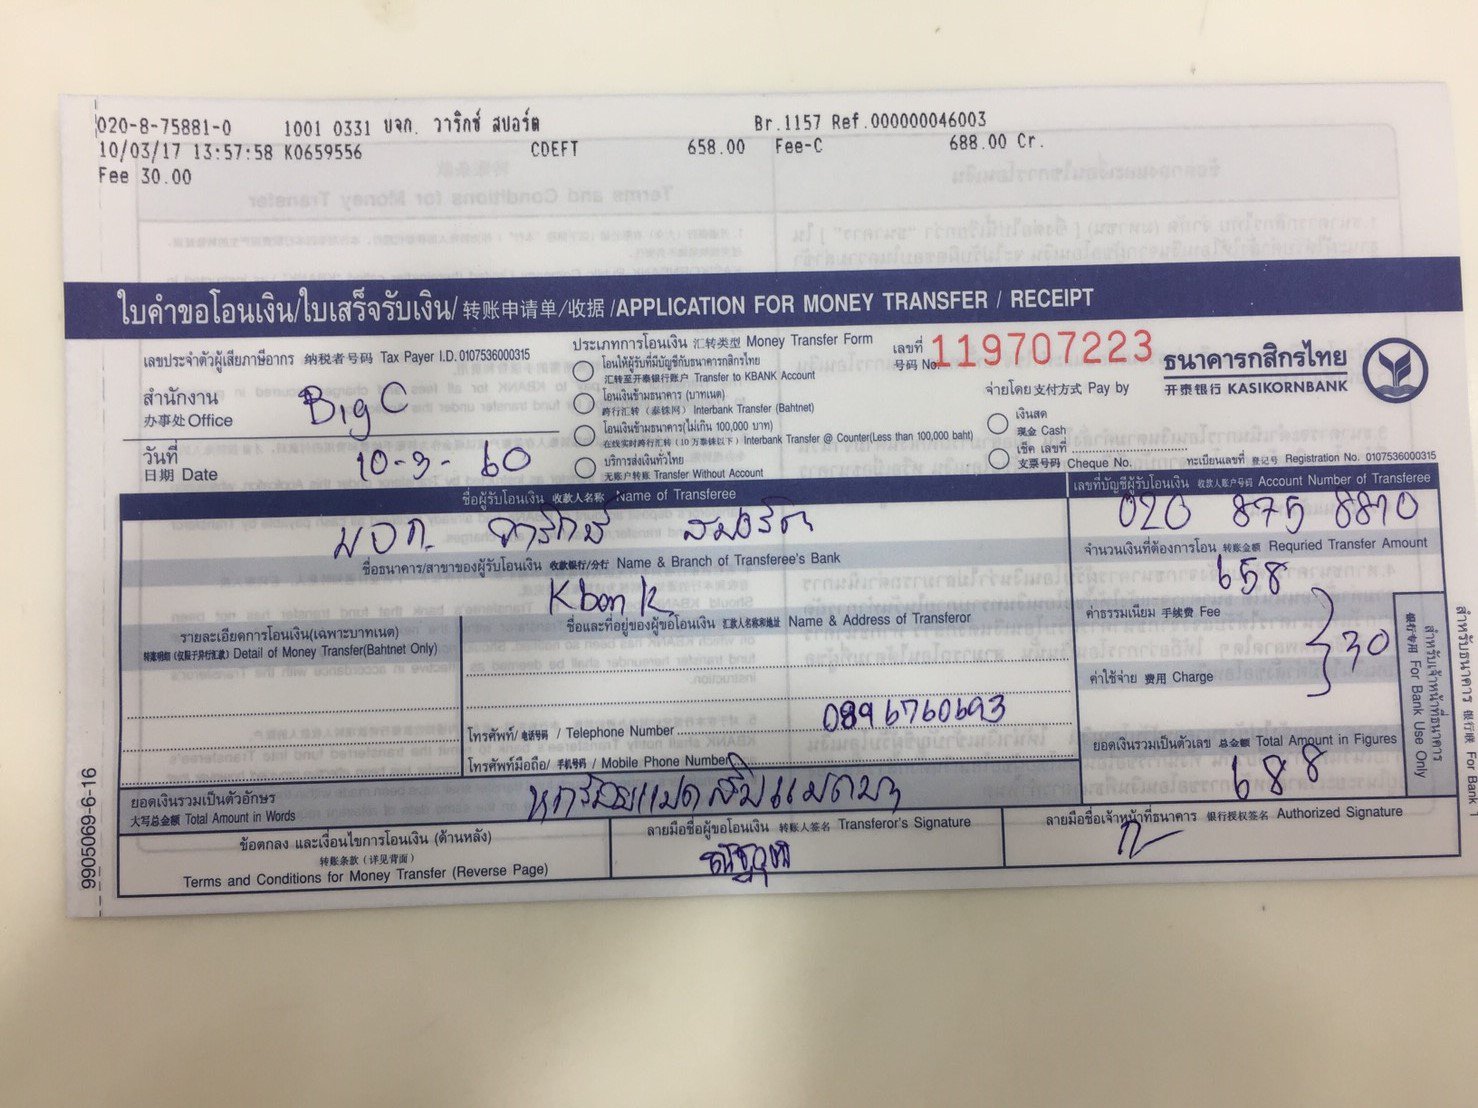 020-8-75881-0 1001 0331 บจก. วาริกซ์ สปอร์ต Br.1157 Ref.000000046003
10/03/17 13:57:58 K0659556 CDEFT 658.00 Fee-C 688.00 Cr.
Fee 30.00
ใบคำขอโอนเงิน/ใบเสร็จรับเงิน/转账申请单/收据/APPLICATION FOR MONEY TRANSFER / RECEIPT
เลขประจำตัวผู้เสียภาษีอากร 纳税者号码 Tax Payer I.D. 0107536000315
สำนักงาน
办事处 Office
Big C
วันที่
日期 Date
10-3-60
ประเภทการโอนเงิน 汇转类型 Money Transfer Form
โอนให้ผู้รับที่มีบัญชีกับธนาคารกสิกรไทย
汇转至开泰银行账户 Transfer to KBANK Account
โอนเงินข้ามธนาคาร (บาทเนต)
跨行汇转（泰铢网）Interbank Transfer (Bahtnet)
โอนเงินข้ามธนาคาร(ไม่เกิน 100,000 บาท)
在线实时跨行汇转（10万泰铢以下）Interbank Transfer @ Counter(Less than 100,000 baht)
บริการส่งเงินทั่วไทย
无账户转账 Transfer Without Account
เลขที่
号码 No.
119707223
จ่ายโดย 支付方式 Pay by
เงินสด
现金 Cash
เช็ค เลขที่
支票号码 Cheque No.
ธนาคารกสิกรไทย
开泰银行 KASIKORNBANK
ทะเบียนเลขที่ 登记号 Registration No. 0107536000315
ชื่อผู้รับโอนเงิน 收款人名称 Name of Transferee
บจก. วาริกซ์ สปอร์ต
เลขที่บัญชีผู้รับโอนเงิน 收款人账户号码 Account Number of Transferee
020 875 8810
ชื่อธนาคาร/สาขาของผู้รับโอนเงิน 收款银行/分行 Name & Branch of Transferee's Bank
Kbank
จำนวนเงินที่ต้องการโอน 转账金额 Requried Transfer Amount
658
รายละเอียดการโอนเงิน(เฉพาะบาทเนต)
转账明细（仅限于异行汇款）Detail of Money Transfer(Bahtnet Only)
ชื่อและที่อยู่ของผู้ขอโอนเงิน 汇款人名称和地址 Name & Address of Transferor
โทรศัพท์/ 电话号码 / Telephone Number
0896760693
โทรศัพท์มือถือ/ 手机号码 / Mobile Phone Number
ค่าธรรมเนียม 手续费 Fee
30
ค่าใช้จ่าย 费用 Charge
ยอดเงินรวมเป็นตัวเลข 总金额 Total Amount in Figures
688
สำหรับเจ้าหน้าที่ธนาคาร
银行专用 For Bank Use Only
สำหรับธนาคาร 银行联 For Bank
ยอดเงินรวมเป็นตัวอักษร
大写总金额 Total Amount in Words
หกร้อยแปดสิบแปดบาท
ข้อตกลง และเงื่อนไขการโอนเงิน (ด้านหลัง)
转账条款（详见背面）
Terms and Conditions for Money Transfer (Reverse Page)
ลายมือชื่อผู้ขอโอนเงิน 转账人签名 Transferor's Signature
ลายมือชื่อเจ้าหน้าที่ธนาคาร 银行授权签名 Authorized Signature
9905069-6-16